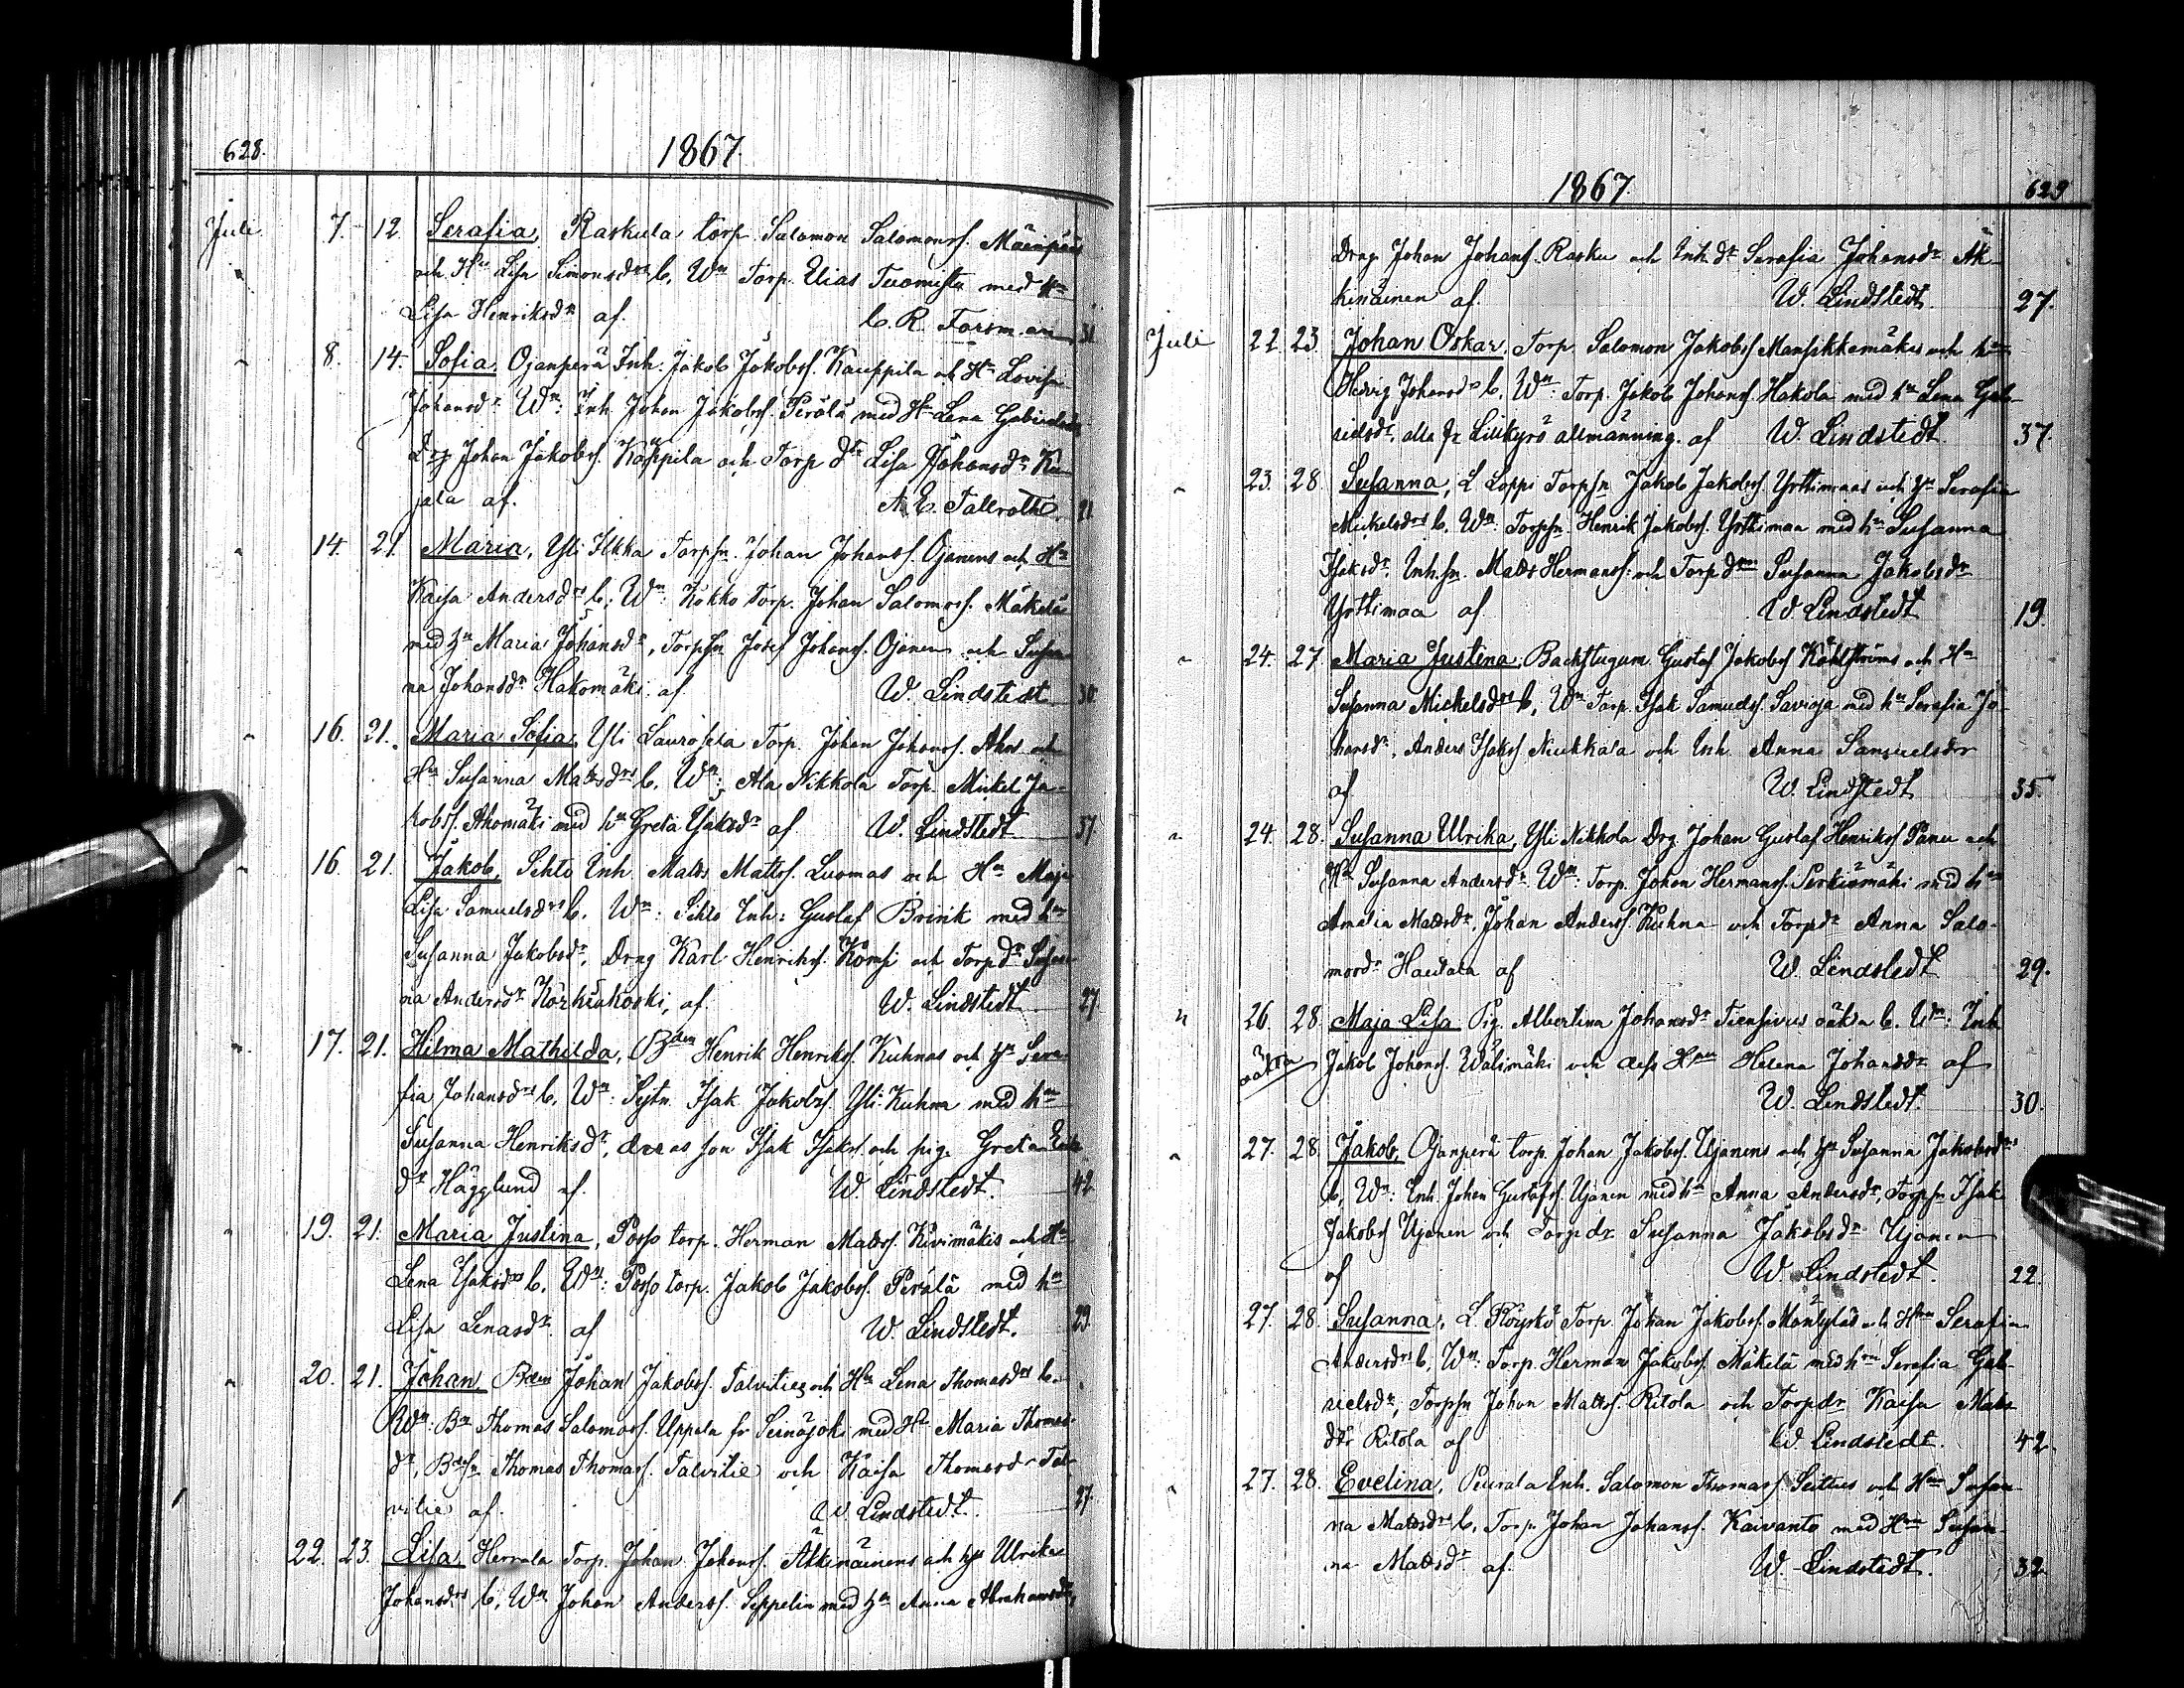 628.
1867.
Juli 7. 12 Serafia, Raskula torp. Salomon Salomonss. Mäenpääs
och Hu Lisa Simonsdrs b. Wn Torp. Elias Tuomista med Hu
Lisa Henriksdr af. C. R. Forsman 31
" 8. 14. Sofia, Ojanperä Inh. Jakob Jakobss. Kauppila och Hu Lovisa
Johansdr Wn: Inh. Johan Jakobss. Perälä med Hu Lena Gabrielsdr
Drg Johan Jakobss. Kauppila och Torp dtr Lisa Johansdr Ku-
jala af. A. E. Tallroth. 21
" 14. 21. Maria, Yli Ilkka Torpsn. Johan Johanss. Ojanens och Hu
Kaisa Andersdrs b; Wn: Kokko Torp. Johan Salomonss. Mäkelä
med Hu Maria Johansdr, Torpsn Josef Johanss. Ojanen och Susan-
na Johansdr Hakomäki af. W. Lindstedt 30
" 16. 21. Maria Sofia, Yli Lauroseia Torp. Johan Johanss. Ahos och
Hu Susanna Mattsdrs b. Wn: Ala Nikkola Torp. Mickel Ja-
kobss. Ahomäki med hu Greta Isaksdr af W. Lindstedt 37
" 16. 21. Jakob, Sihto Inh. Matts Mattss. Luomas och Hu Maja
Lisa Samuelsdrs b. Wn: Sihto Inh: Gustaf Brink med hu
Susanna Jakobsdr, Drng Karl Henrikss. Kömsi och Torp dr Susan-
na Andersdr Korkiakoski, af. W. Lindstedt 27
" 17. 21. Hilma Mathilda, Bden Henrik Henrikss. Kuhnas och Hu Sera-
fia Johansdrs b. Wn: Sytn. Isak Jakobss. Yli-Kuhna med hu
Susanna Henriksdr, deras son Isak Isakss. och pig. Greta
dr Hägglund af. W. Lindstedt. 42
" 19. 21. Maria Justina, Posso torp. Herman Mattss. Kivimäkis och Hu
Lena Isaksdrs b. Wn: Posso torp. Jakob Jakobss. Perälä med hu
Lisa Lenasdr. af W. Lindstedt. 29.
" 20. 21. Johan, Bden Johan Jakobss. Talvities och Hu Lena Thomasdrs b.
Wn: Bn Thomas Salomonss. Uppala fr Seinäjoki med Hu Maria Thomas-
dr, Bdesn Thomas Thomass. Talvitie och Kaisa Thomasdr Tal-
vitie af. W. Lindstedt. 27.
22. 23. Lisa, Herrala Torp. Johan Johanss. Äkkinäinens och Hu Ulrika
Johansdrs b. Wn Johan Anderss. Seppelin med Hu Anna Abrahamsdr,
1867.
629
Drng Johan Johanss. Rasku och Inh. dr Serafia Johansdr Äk-
kinäinen af. W. Lindstedt. 27.
Juli 22 23. Johan Oskar, Torp. Salomon Jakobss Mansikkamäkis och hu
Hedvig Johansdrs b. Wn: Torp. Jakob Johanss. Hakola med hu Lena Gab-
rielsdr, alla fr Lillkyrö allmänning. af W. Lindstedt. 37.
" 23. 28. Susanna, L Loppi Torpsn Jakob Jakobss. Yrttimaas och Hu Serafia
Mickelsdrs b. Wn: Torpsn. Henrik Jakobss. Yrttimaa med hu Susanna
Isaksdr, Inh.sn. Matts Hermanss: och Torp drn Susanna Jakobsdr
Yrttimaa af W. Lindstedt 19.
" 24. 27. Maria Justina, Backstugum. Gustaf Jakobss Kåhlströms och Hu
Susanna Mickelsdrs b, Wn Torp. Isak Samuelss. Savioja med hu Serafia Jo-
hansdr, Anders Isakss Niukkala och Inh. Anna Samuelsdr
af W. Lindstedt 35.
" 24. 28. Susanna Ulrika, Yli Nikkola Drg. Johan Gustaf Henrikss Panu och
Hu Susanna Andersdr. Wn: Torp. Johan Hermanss. Perkiömäki med hu
Amalia Mattsdr, Johan Anderss. Kuhna och Torpdr Anna Salo-
monsdr Haudala af W. Lindstedt 29.
" 26. 28. Maja Lisa, Pig. Albertina Johansdr Tiensivus oäkta b. Wn: Inh.
oäkta Jakob Johanss. Wälimäki och dess Hu Helena Johansdr af
W. Lindstedt. 30.
" 27. 28. Jakob, Ojanperä torp. Johan Jakobss. Ujanens och Hu Susanna Jakobsdrs
b, Wn: Inh. Johan Gustafss. Ujanen med hu Anna Andersdr, Torpsn Isak
Jakobss Ujanen och Torpdr Susanna Jakobsdr Ujanen
af W. Lindstedt. 22.
27. 28. Susanna, L. Röyskö Torp. Johan Jakobss. Mäntyläs och Hu Serafia
Andersdrs b, Wn: Torp. Herman Jakobss. Mäkelä med hu Serafia Gab-
rielsdr, Torpsn Johan Mattss. Ritola och Torpdr Kaisa Matts
dtr Ritola af W. Lindstedt. 42.
" 27. 28. Evelina, Peurala Inh. Salomon Thomass. Seittus och Hu Susan-
na Mattsdrs b, Torp. Johan Johanss. Kaivanto med Hu Susan-
na Mattsdr af. W. Lindstedt. 32